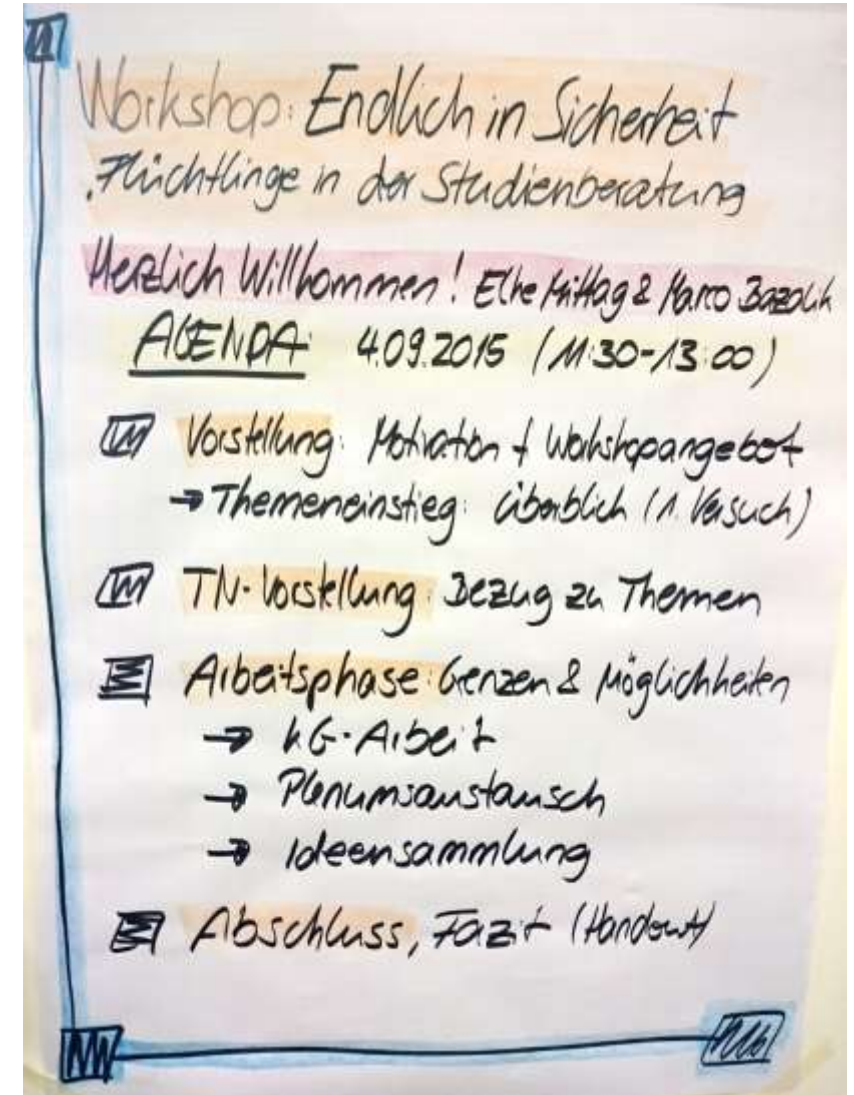 Workshop: Endlich in Sicherheit
Flüchtlinge in der Studienberatung
Herzlich Willkommen! Elke Mittag & Marco Bazalik
AGENDA: 4.09.2015 (11:30-13:00)
Vorstellung: Motivation + Workshopangebot
→ Themeneinstieg: Überblick (1. Versuch)
TN-Vorstellung: Bezug zu Themen
Arbeitsphase: Genzen & Möglichkeiten
→ KG-Arbeit
→ Plenumsaustausch
→ Ideensammlung
Abschluss, Fazit (Handout)